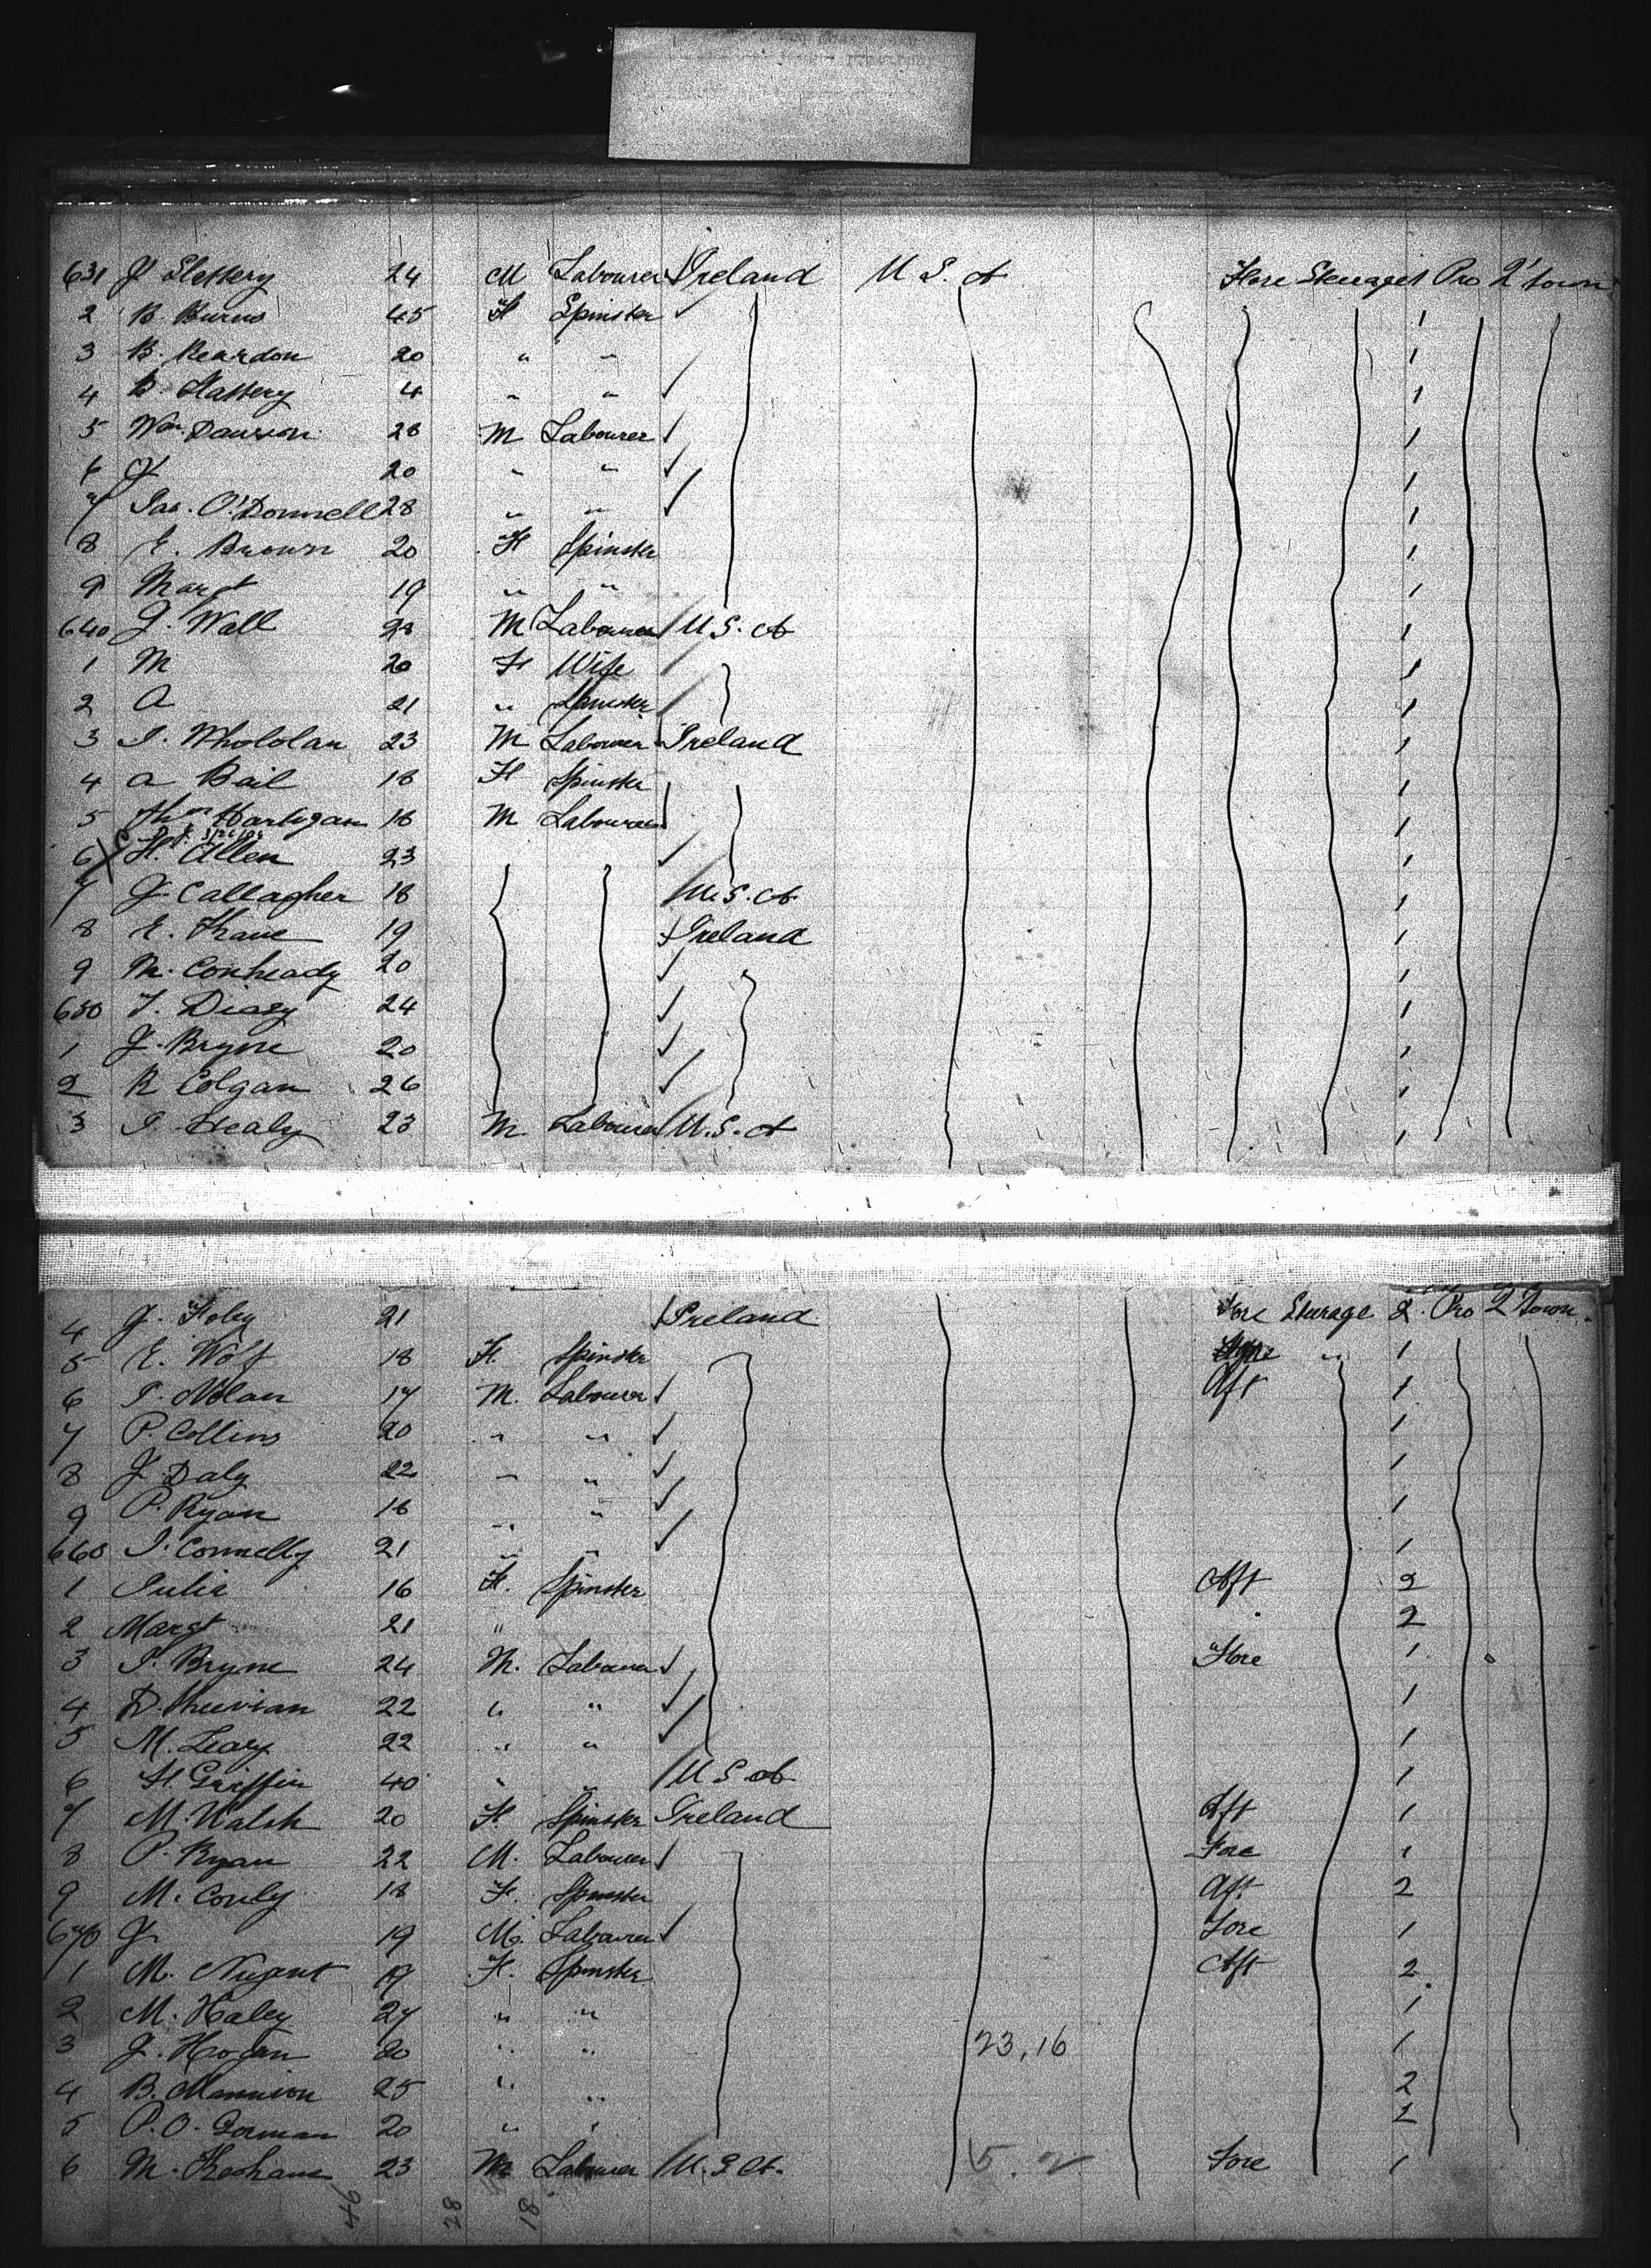 631 J Slattery 24 M Labourer Ireland U S. A Fore Steerage 1 Pro Q'town
2 B. Burns 45 F Spinster 1
3 B. Reardon 20 " " 1
4 B. Slattery 4 " " 1
5 Wm. Dawson 28 M Labourer 1
6 J 20 " " 1
7 Jas. O'Donnell 28 " " 1
8 E. Brown 20 F Spinster 1
9 Margt 19 " " 1
640 J. Wall 28 M Labourer U.S.A 1
1 M 20 F Wife 1
2 A 21 " Spinster 1
3 23 M Labourer Ireland 1
4 A Bail 18 F Spinster 1
5 Thos Hartigan 18 M Labourer 1
6 H. Allen 23 1
7 J. Callagher 18 U.S.A. 1
8 E. Kane 19 Ireland 1
9 M. Conheady 20 1
650 24 1
1 J. Bryne 20 1
2 R Colgan 26 1
3 J. Healy 23 M. Labourer U.S.A 1
4 J. Foley 21 Ireland Fore Steerage 2. Pro Q'town.
5 E. Wolf 18 F. Spinster " 1
6 P. Nolan 17 M. Labourer Aft 1
7 P. Collins 20 " " 1
8 J. Daly 22 " " 1
9 P. Ryan 18 " " 1
660 J. Connelly 21 " " 1
1 Julia 16 F. Spinster Aft 2
2 Margt 21 " 2
3 P. Bryne 24 M. Labourer Fore 1
4 22 " " 1
5 M. Leary 22 " " 1
6 H. Griffin 40 " " U S A 1
7 M. Walsh 20 F. Spinster Ireland Aft 1
8 P. Ryan 22 M. Labourer Fore 1
9 M. Conly 18 F. Spinster Aft 2
670 J. 19 M. Labourer Fore 1
1 M. Nugent 19 F. Spinster Aft 2
2 M. Haley 27 " " 1
3 J. Hogan 20 " " 23,16 1
4 B. Mannion 25 " " 2
5 P. O. Gorman 20 " " 2
6 M. Keohane 23 M Labourer U.S.A. 5. 2 Fore 1
46 28 18